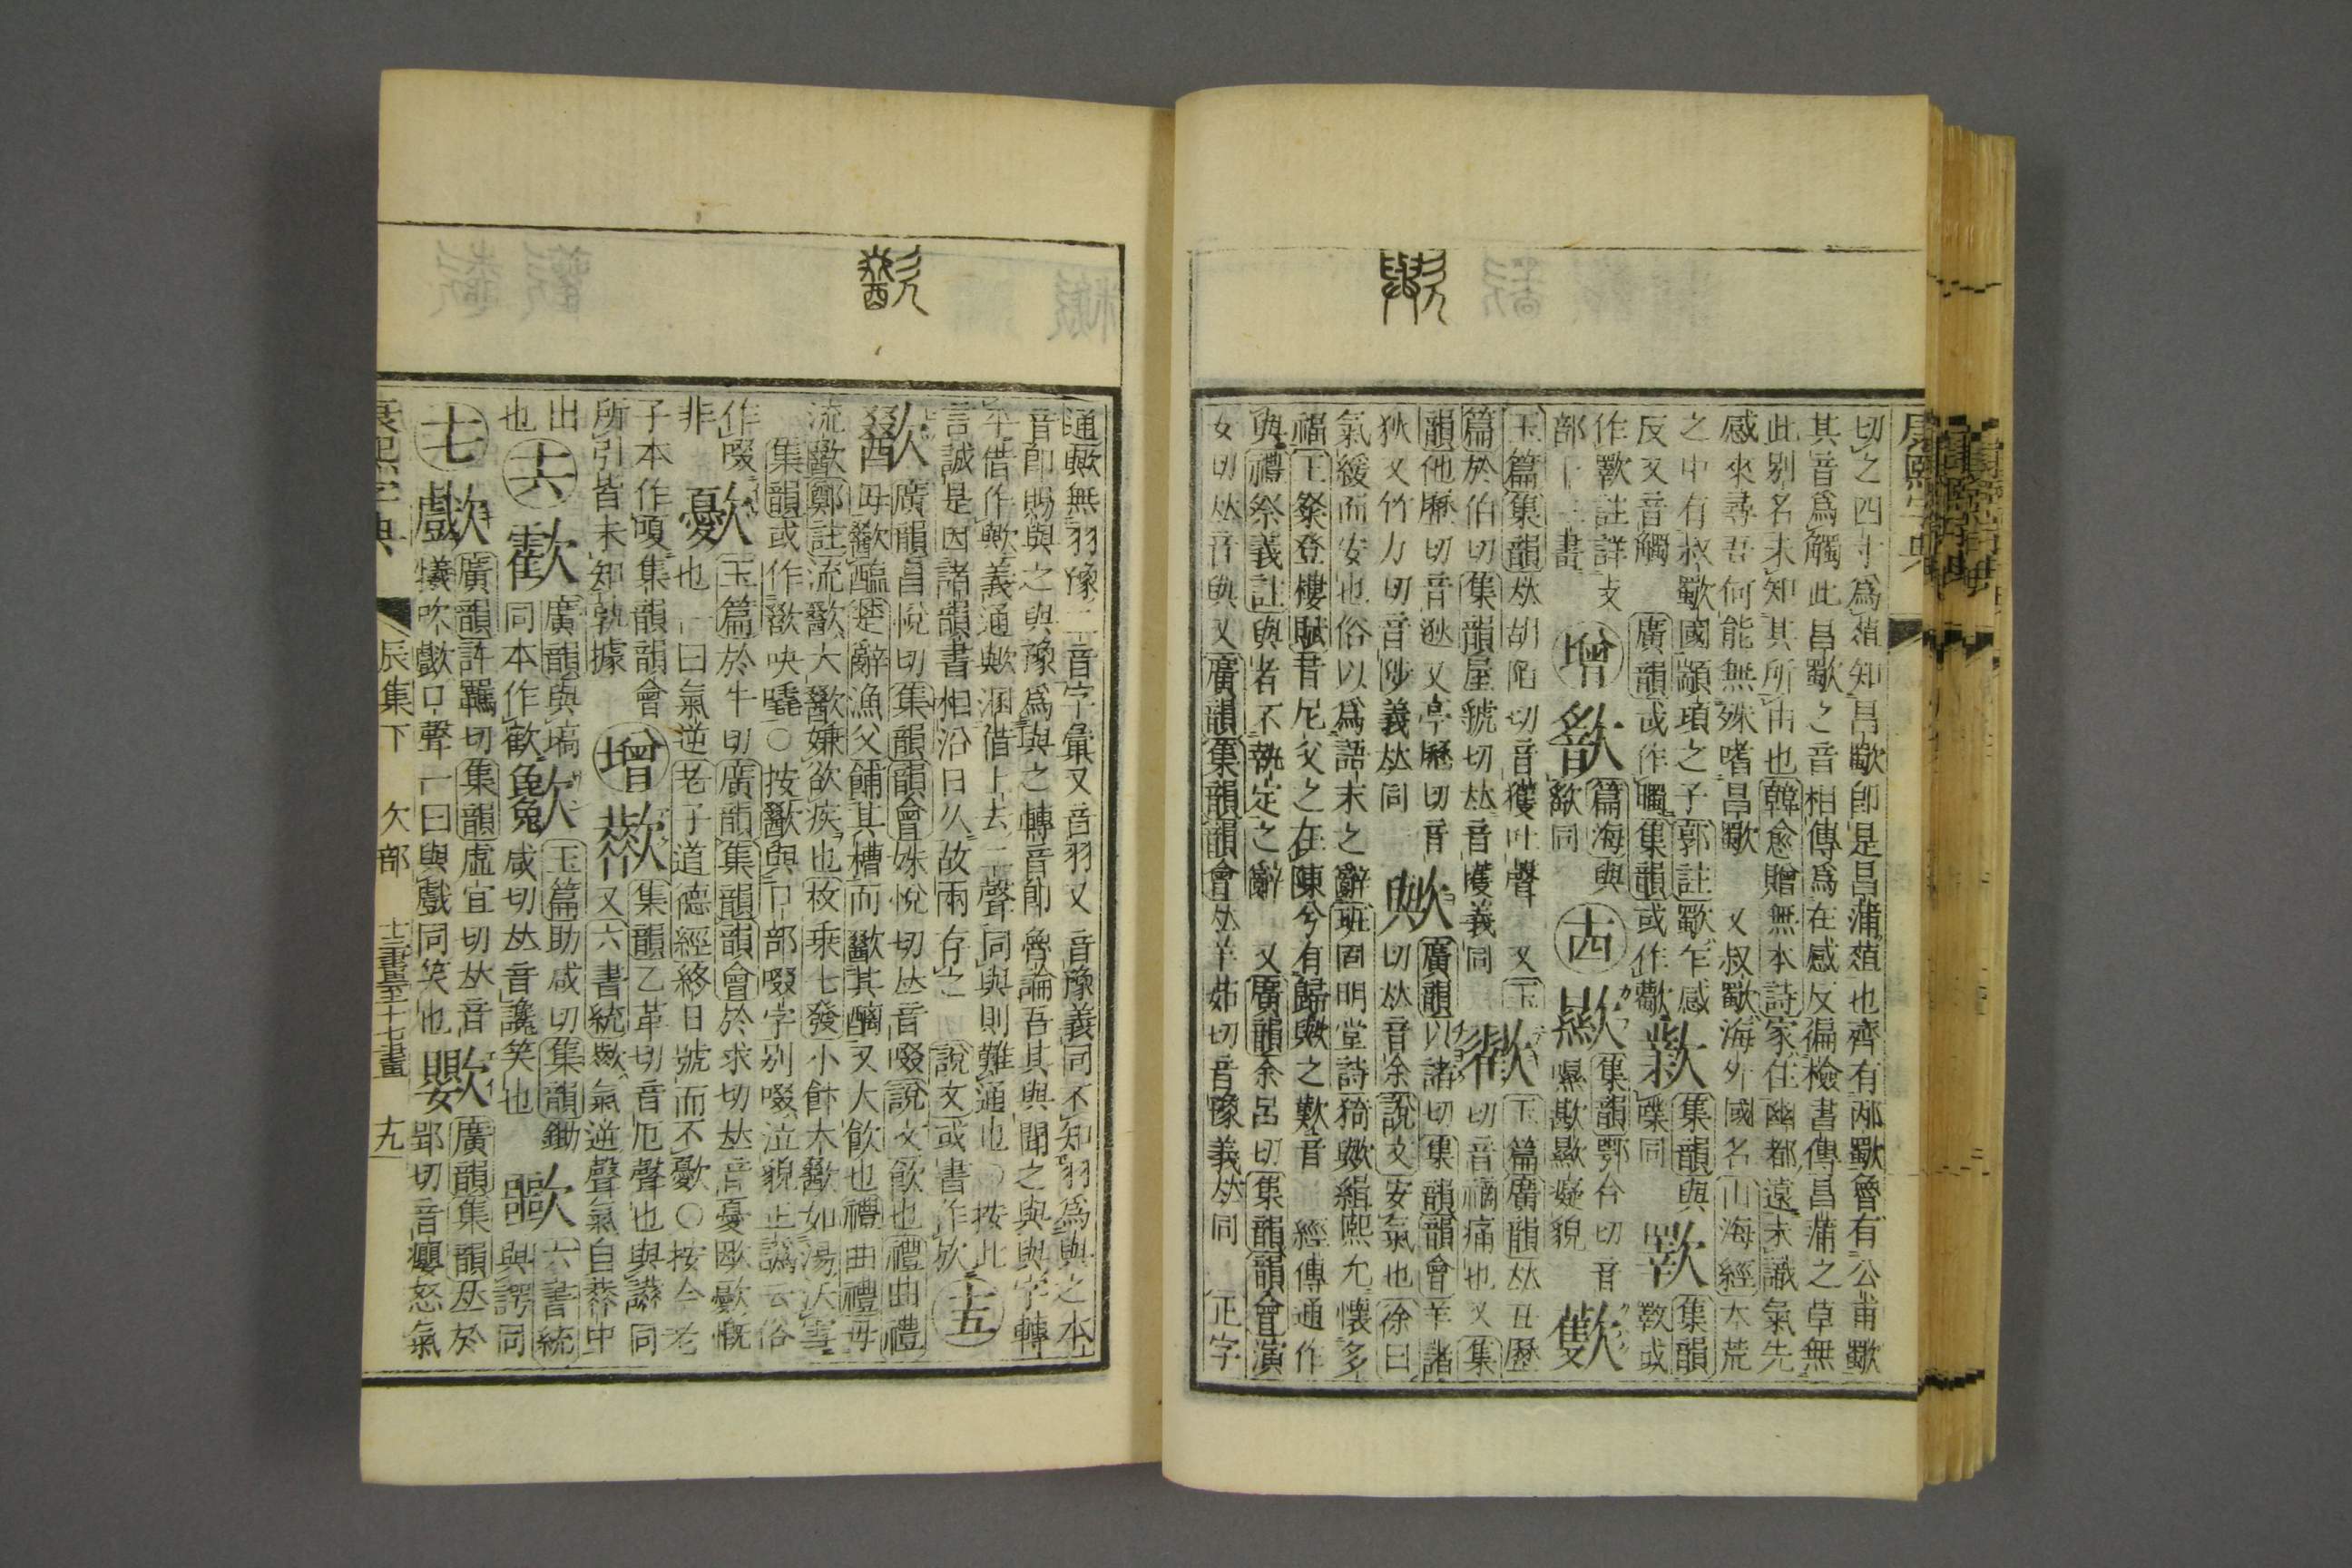 切之四寸爲菹知昌歜卽是昌蒲菹也齊有邴歜魯有公甫歜
其音爲觸此昌歜之音相傳爲在感反徧檢書傳昌蒲之草無
此別名未知其所由也韓愈贈無本詩家住幽都遠未識氣先
感來尋吾何能無殊嗜昌歜 又叔歜海外國名山海經大荒
之中有叔歜國顓頊之子郭註歜乍感
反又音觸 廣韻或作𠿕集韻或作
歠 集韻與
同
集韻
敦或
作歠註詳支
部十三畫
增
歆
篇海與
歆同
十四
集韻鄂合切音
貌
歡
玉篇集韻𠀤胡陷切音獲吐聲 又玉
篇於伯切集韻屋虢切𠀤音擭義同
玉篇廣韻𠀤丑歷
切音 痛也又集
韻他歷切音逖又亭歷切音
狄又竹力切音陟義𠀤同
歟
廣韻以諸切集韻韻會羊諸
切𠀤音余說文安氣也徐曰
氣緩而安也俗以爲語末之辭班固明堂詩猗歟緝熙允懷多
福王粲登樓賦昔尼父之在陳兮有歸歟之歎音 經傳通作
與禮祭義註與者不執定之辭 又廣韻余呂切集韻韻會演
女切𠀤音與又廣韻集韻韻會𠀤羊茹切音豫義𠀤同 正字
通歟無羽豫二音字彙又音羽又 音豫義同不知羽爲與之本
音卽賜與之與豫爲與之轉音卽 魯論吾其與聞之與與字轉
年借作歟義通歟溷借上去二聲同與則難通也○按此
言誠是因諸韻書相沿日久故兩存之 說文或書作欤
十五
歠
廣韻昌悅切集韻韻會姝悅切𠀤音啜說文飮也禮曲禮
毋歠醢楚辭漁父餔其糟而歠其醨又大飮也禮曲禮毋
流歠鄭註流歠大歠嫌欲疾也枚乘七發小飰大歠如湯沃雪
集韻或作㰽吷㬭○按歠與口部啜字別啜泣貌正譌云俗
作啜
非
歞
玉篇於牛切廣韻集韻韻會於求切𠀤音憂歐歞慨
也一曰氣逆老子道德經終日號而不歞○按今老
子本作嗄集韻韻會
所引皆未知孰據
增
集韻乙革切音厄聲也與讍同
又六書統歟氣逆聲氣自 中
出
也
十六
歡
廣韻與塙
同本作歡
玉篇助咸切集韻鋤
咸切𠀤音讒笑也
六書統
與諤同
十七
歔
廣韻許羈切集韻虛宜切𠀤音
犧吹歔口聲一曰與戲同笑也
廣韻集韻𠀤於
郢切音癭怒氣
康熙字典 辰集下 欠部 十三畫至十七畫 十九